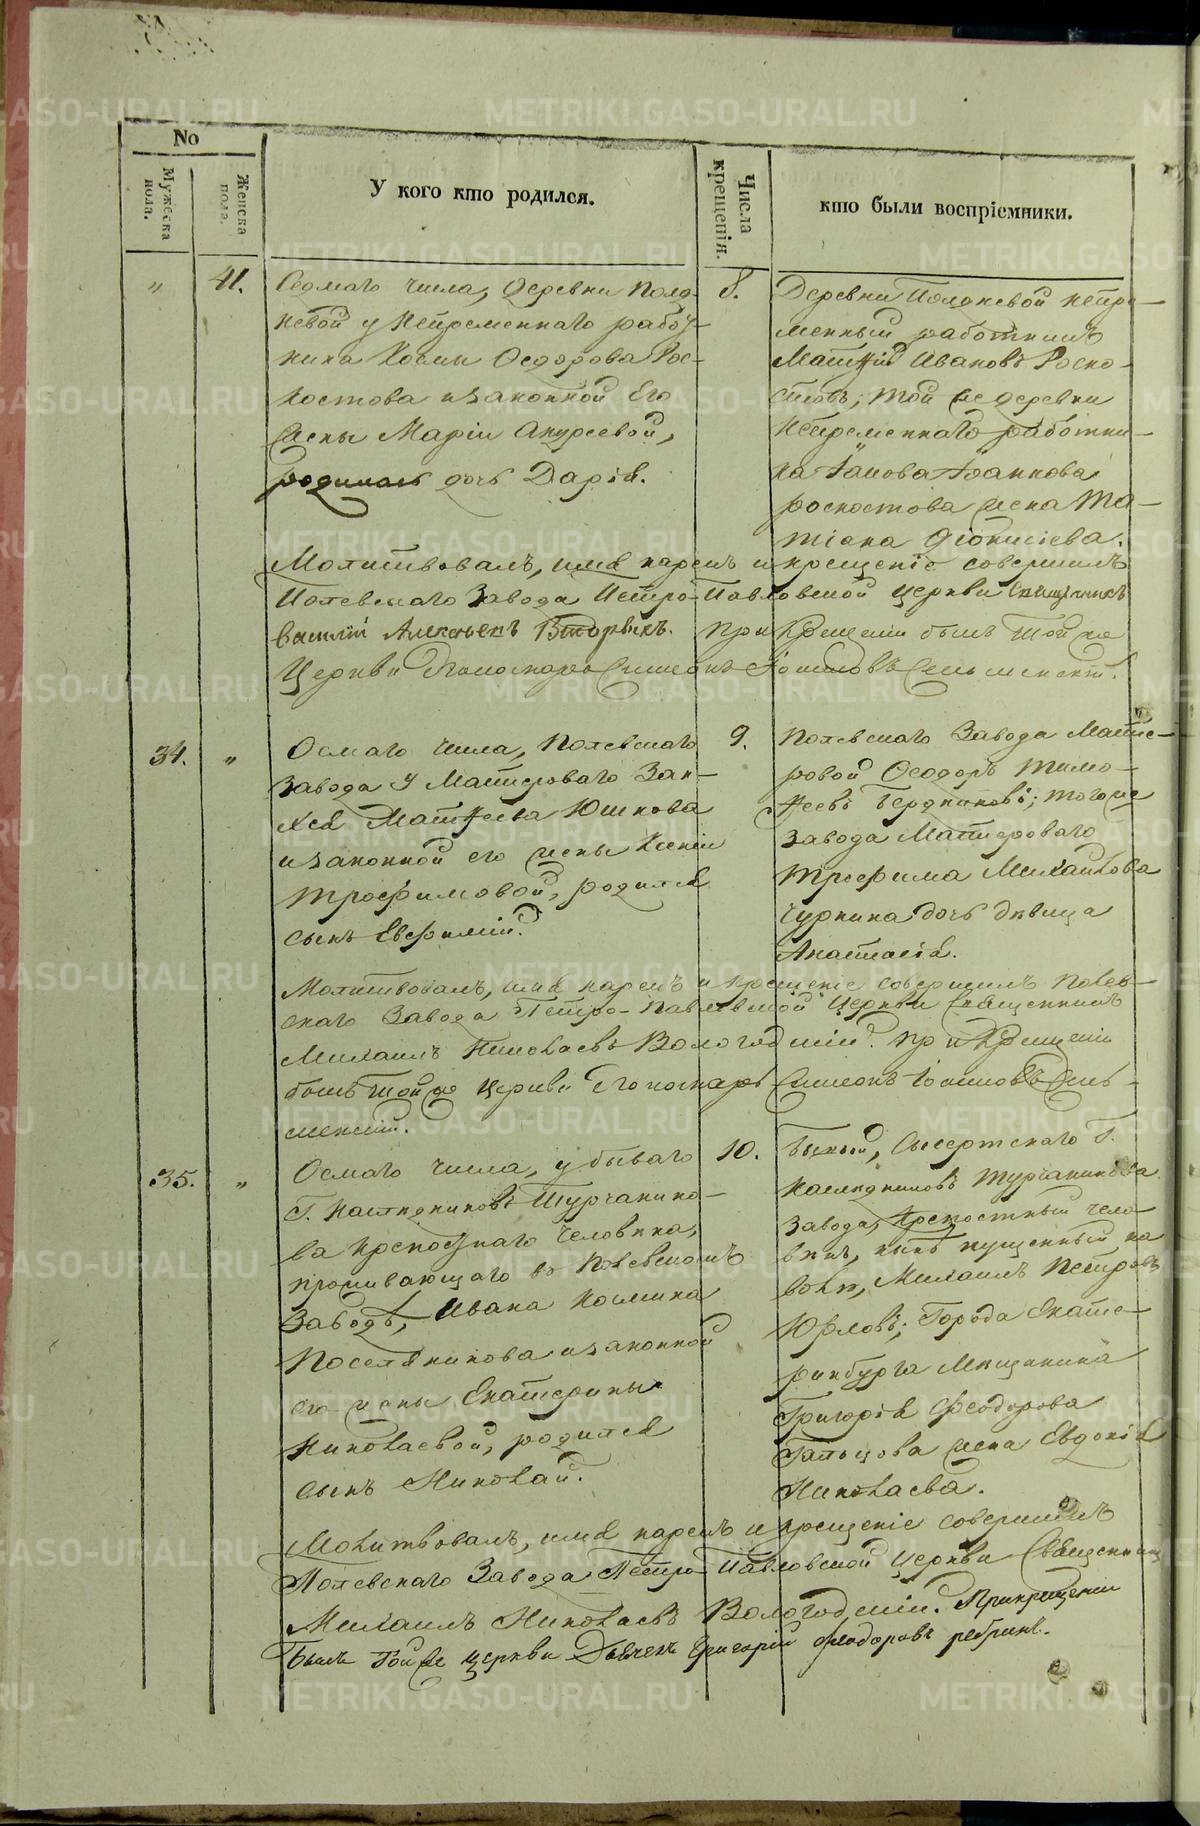 No
Мужеска пола.
Женска пола.
У кого кто родился.
Числа крещенія.
кто были воспріемники.
" 41.
Седмаго числа, Деревни Полд-
невой у Непременнаго работ-
ника Космы Ѳеодорова Рос-
костова и законной Его
жены Маріи Андреевой,
родилась дочь Дарія.
8.
Деревни Полдневой непре-
менный работникъ
Матѳій Ивановъ Роско-
стовъ; той же деревни
Непременнаго работни-
ка Іоанова
роскостова жена Та-
тіана Діонисіева.
Молитвовалъ, имя нарекъ и крещеніе совершилъ
Полевскаго Завода Петро-Павловской церкви Священникъ
Василій Алексѣевъ Вторыхъ. При Крещеніи былъ той же
Церкви Пономарь Симеонъ
34. "
Осмаго числа, Полевскаго
Завода у Мастероваго
Матѳеева Юшкова
и законной его жены Ксеніи
Трофимовой, родился
сынъ Евфимій.
9.
Полевскаго Завода Масте-
ровой Ѳеодоръ Тимо-
ѳеевъ Бердниковъ; тогоже
Завода Мастероваго
Трофима Михайлова
Чуркина дочь дѣвица
Анастасія.
Молитвовалъ, имя нарекъ и крещеніе совершилъ Полев-
скаго Завода Петро-Павловской церкви Священникъ
Михаилъ Николаевъ Вологодскій. при Крещеніи
былъ той же церкви Пономарь Симеонъ
35. "
Осмаго числа, у бываго
Г. Наслѣдниковъ Турчанино-
ва крепостнаго человѣка,
проживающаго въ Полевскомъ
Заводѣ, Ивана Космина
Поселянникова и законной
его жены Екатерины
Николаевой, родился
сынъ Николай.
10.
Бывый, Сысертскаго Г.
Наслѣдниковъ Турчанинова
Завода, крепостный чело-
вѣкъ, нынѣ пущенный на
волю, Михаилъ Петровъ
Юрловъ; Города Екате-
ринбурга Мѣщанина
Григорія Феодорова
Гальцова жена Евдокія
Николаева.
Молитвовалъ, имя нарекъ и крещеніе совершилъ
Полевскаго Завода Петро-Павловской церкви Священникъ
Михаилъ Николаевъ Вологодскій. При крещеніи
Былъ той же церкви Дьячекъ Григорій Феодоровъ
METRIKI.GASO-URAL.RU